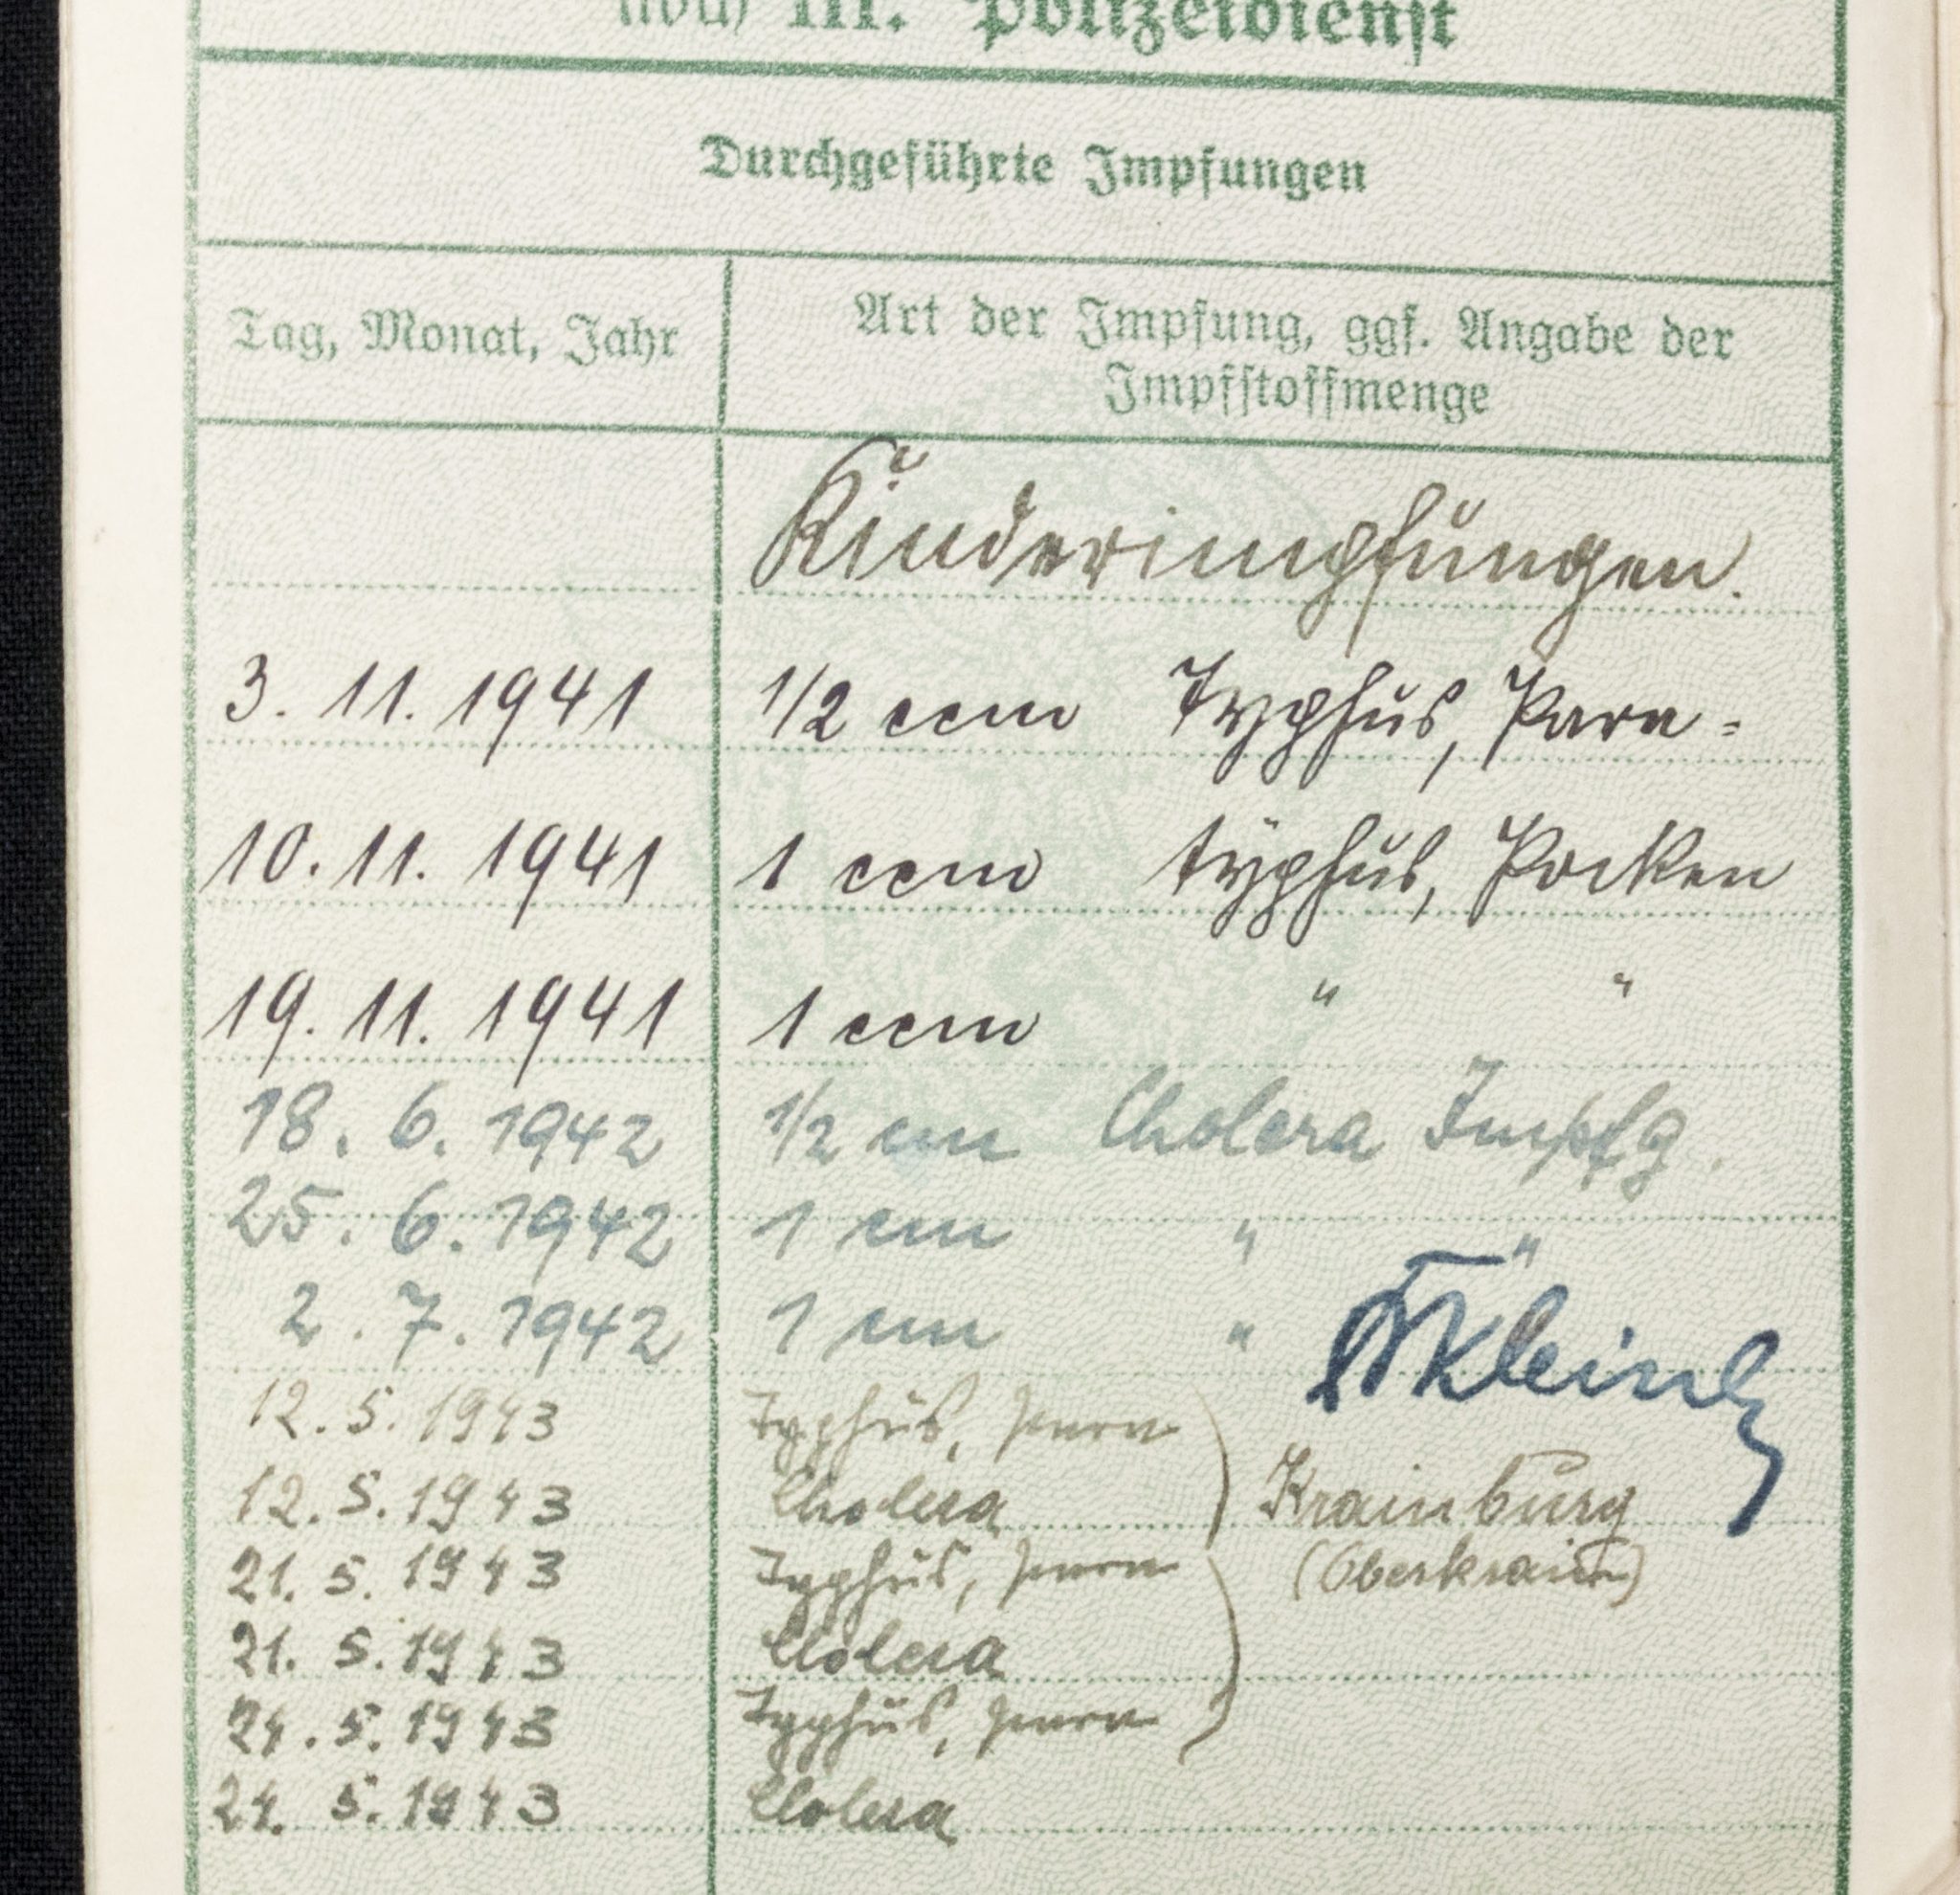 noch III. Polizeidienst
Durchgeführte Impfungen
Tag, Monat, Jahr
Art der Impfung, ggf. Angabe der
Impfstoffmenge
Kinderimpfungen.
3. 11. 1941 1/2 ccm Typhus, Para=
10. 11. 1941 1 ccm typhus, Pocken
19. 11. 1941 1 ccm " "
18. 6. 1942 1/2 cm Cholera Impfg.
25. 6. 1942 1 cm " "
2. 7. 1942 1 cm "
12. 5. 1943 Typhus, para
12. 5. 1943 Cholera Krainburg
21. 5. 1943 Typhus, para (Oberkrain)
21. 5. 1943 Cholera
24. 5. 1943 Typhus, para
24. 5. 1943 Cholera